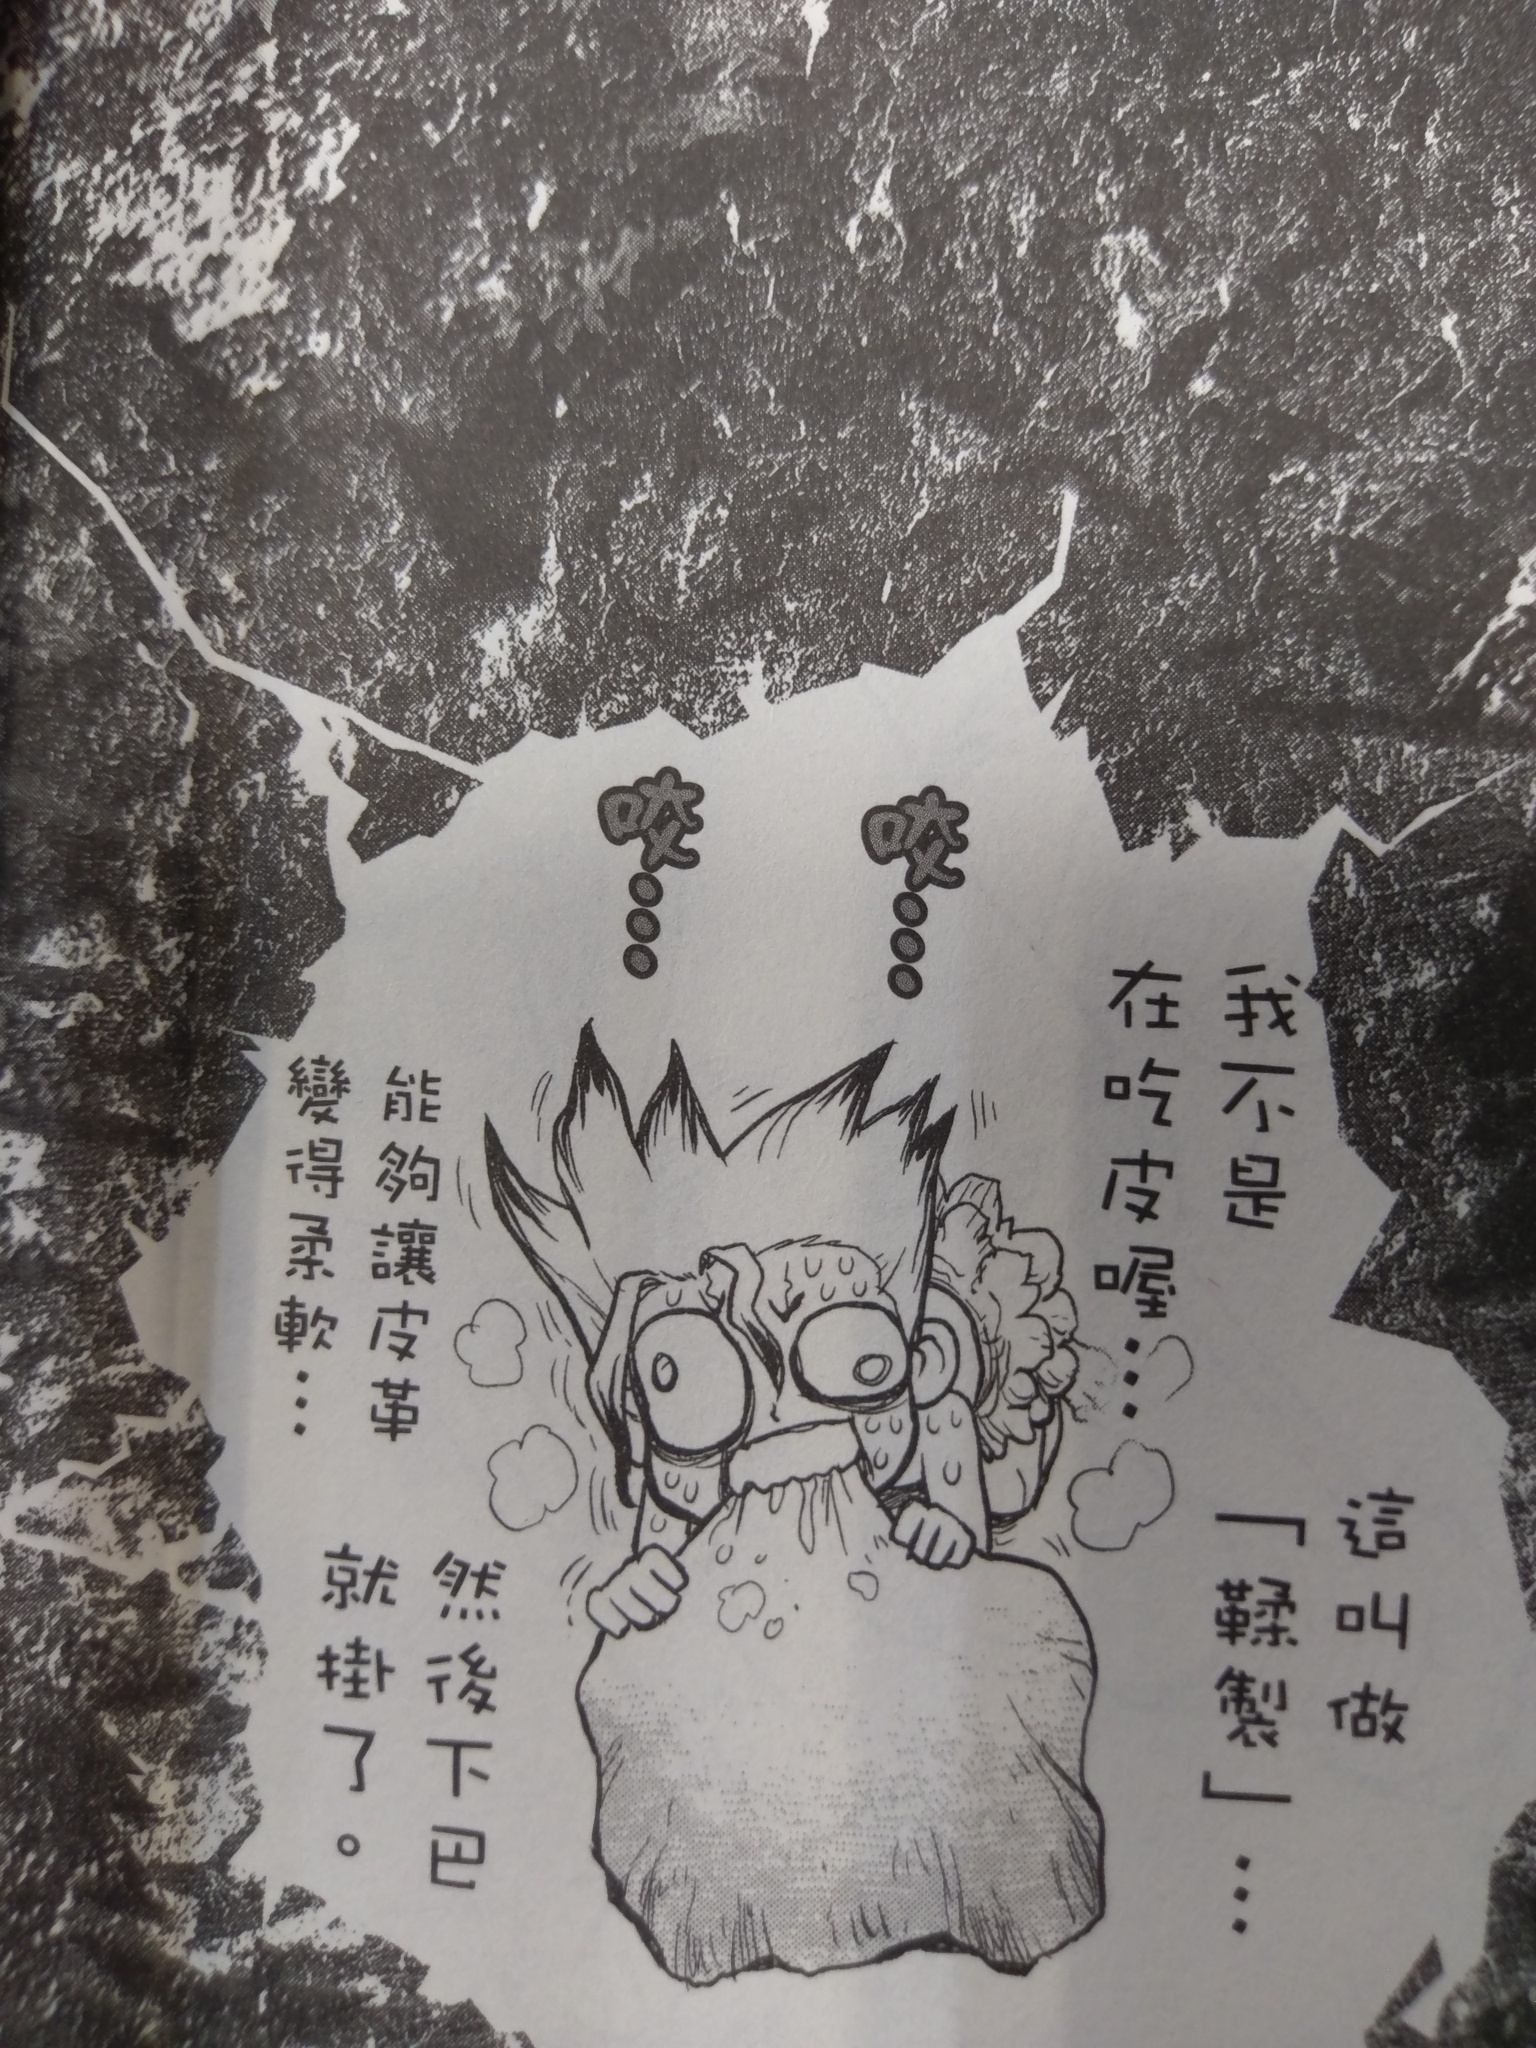 我不是
在吃皮喔…
這叫做
「鞣製」…
咬…
咬…
能夠讓皮革
變得柔軟…
然後下巴
就掛了。